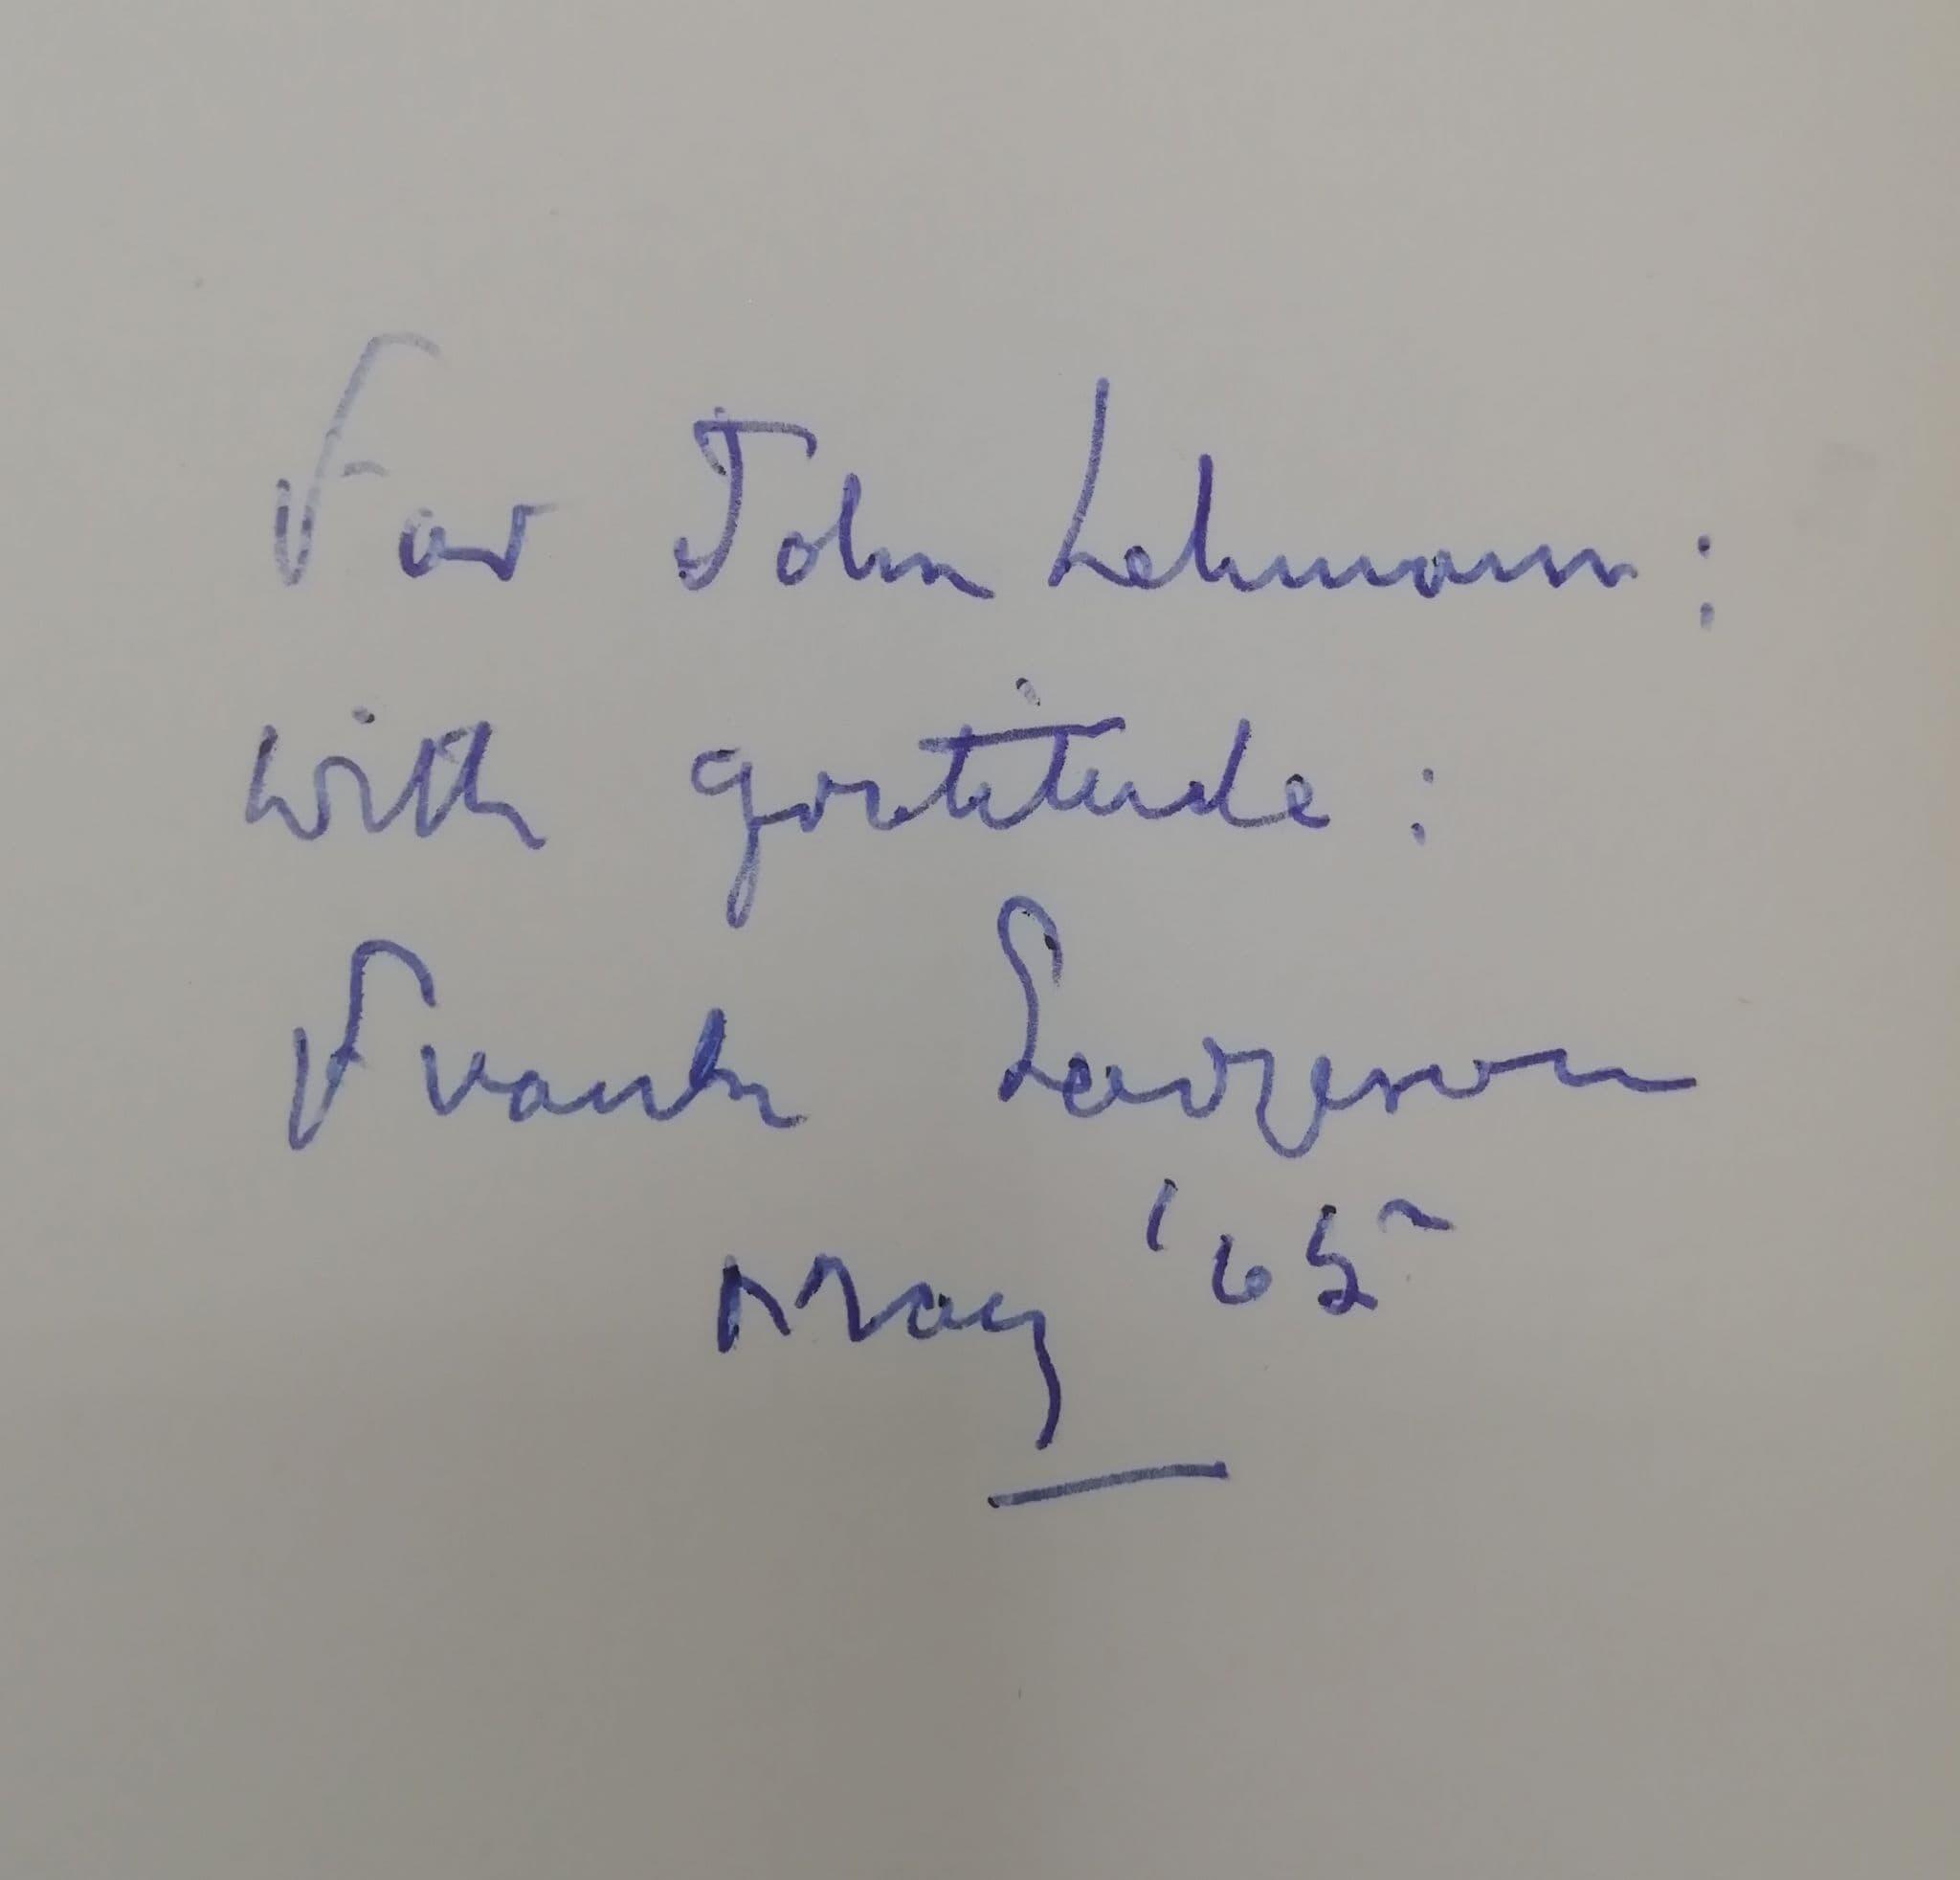 For John Lehmann:
with gratitude:
Frank
May '65